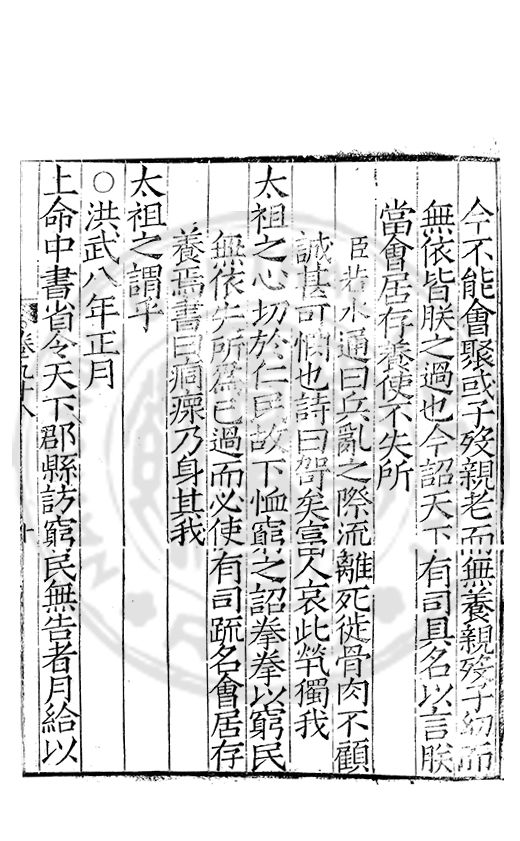 今不能會聚或子歿親老而無養親歿子幼而
無依皆朕之過也今詔天下有司具名以言朕
當會居存養使不失所
臣若水通曰兵亂之際流離死徙骨肉不顧
誠甚可憫也詩曰哿矣富人哀此煢獨我
太祖之心切於仁民故下恤窮之詔拳拳以窮民
無依失所爲已過而必使有司䟽名會居存
養焉書曰痌瘝乃身其我
太祖之謂乎
○洪武八年正月
上命中書省令天下郡縣訪窮民無告者月給以
卷九十八
十